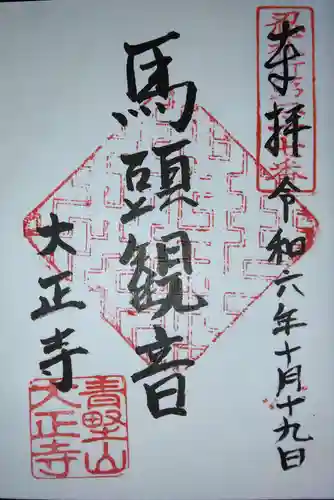 奉拝 令和六年十月十九日
馬頭観音
大正寺
青野山
大正寺